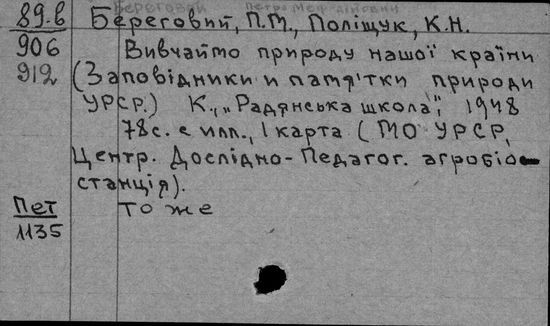 Береговий Петро Мефодійович
89.в Береговий, П.М., Поліщук, К.Н.
906 Вивчаймо природу нашої країни
912 (Заповідники и пам'ятки природи
УРСР.) К., „Радянська школа", 1948
78с. с илл., 1 карта (МО УРСР,
Центр. Дослідно-Педагог. агробіо-
станція).
Пет То же
1135